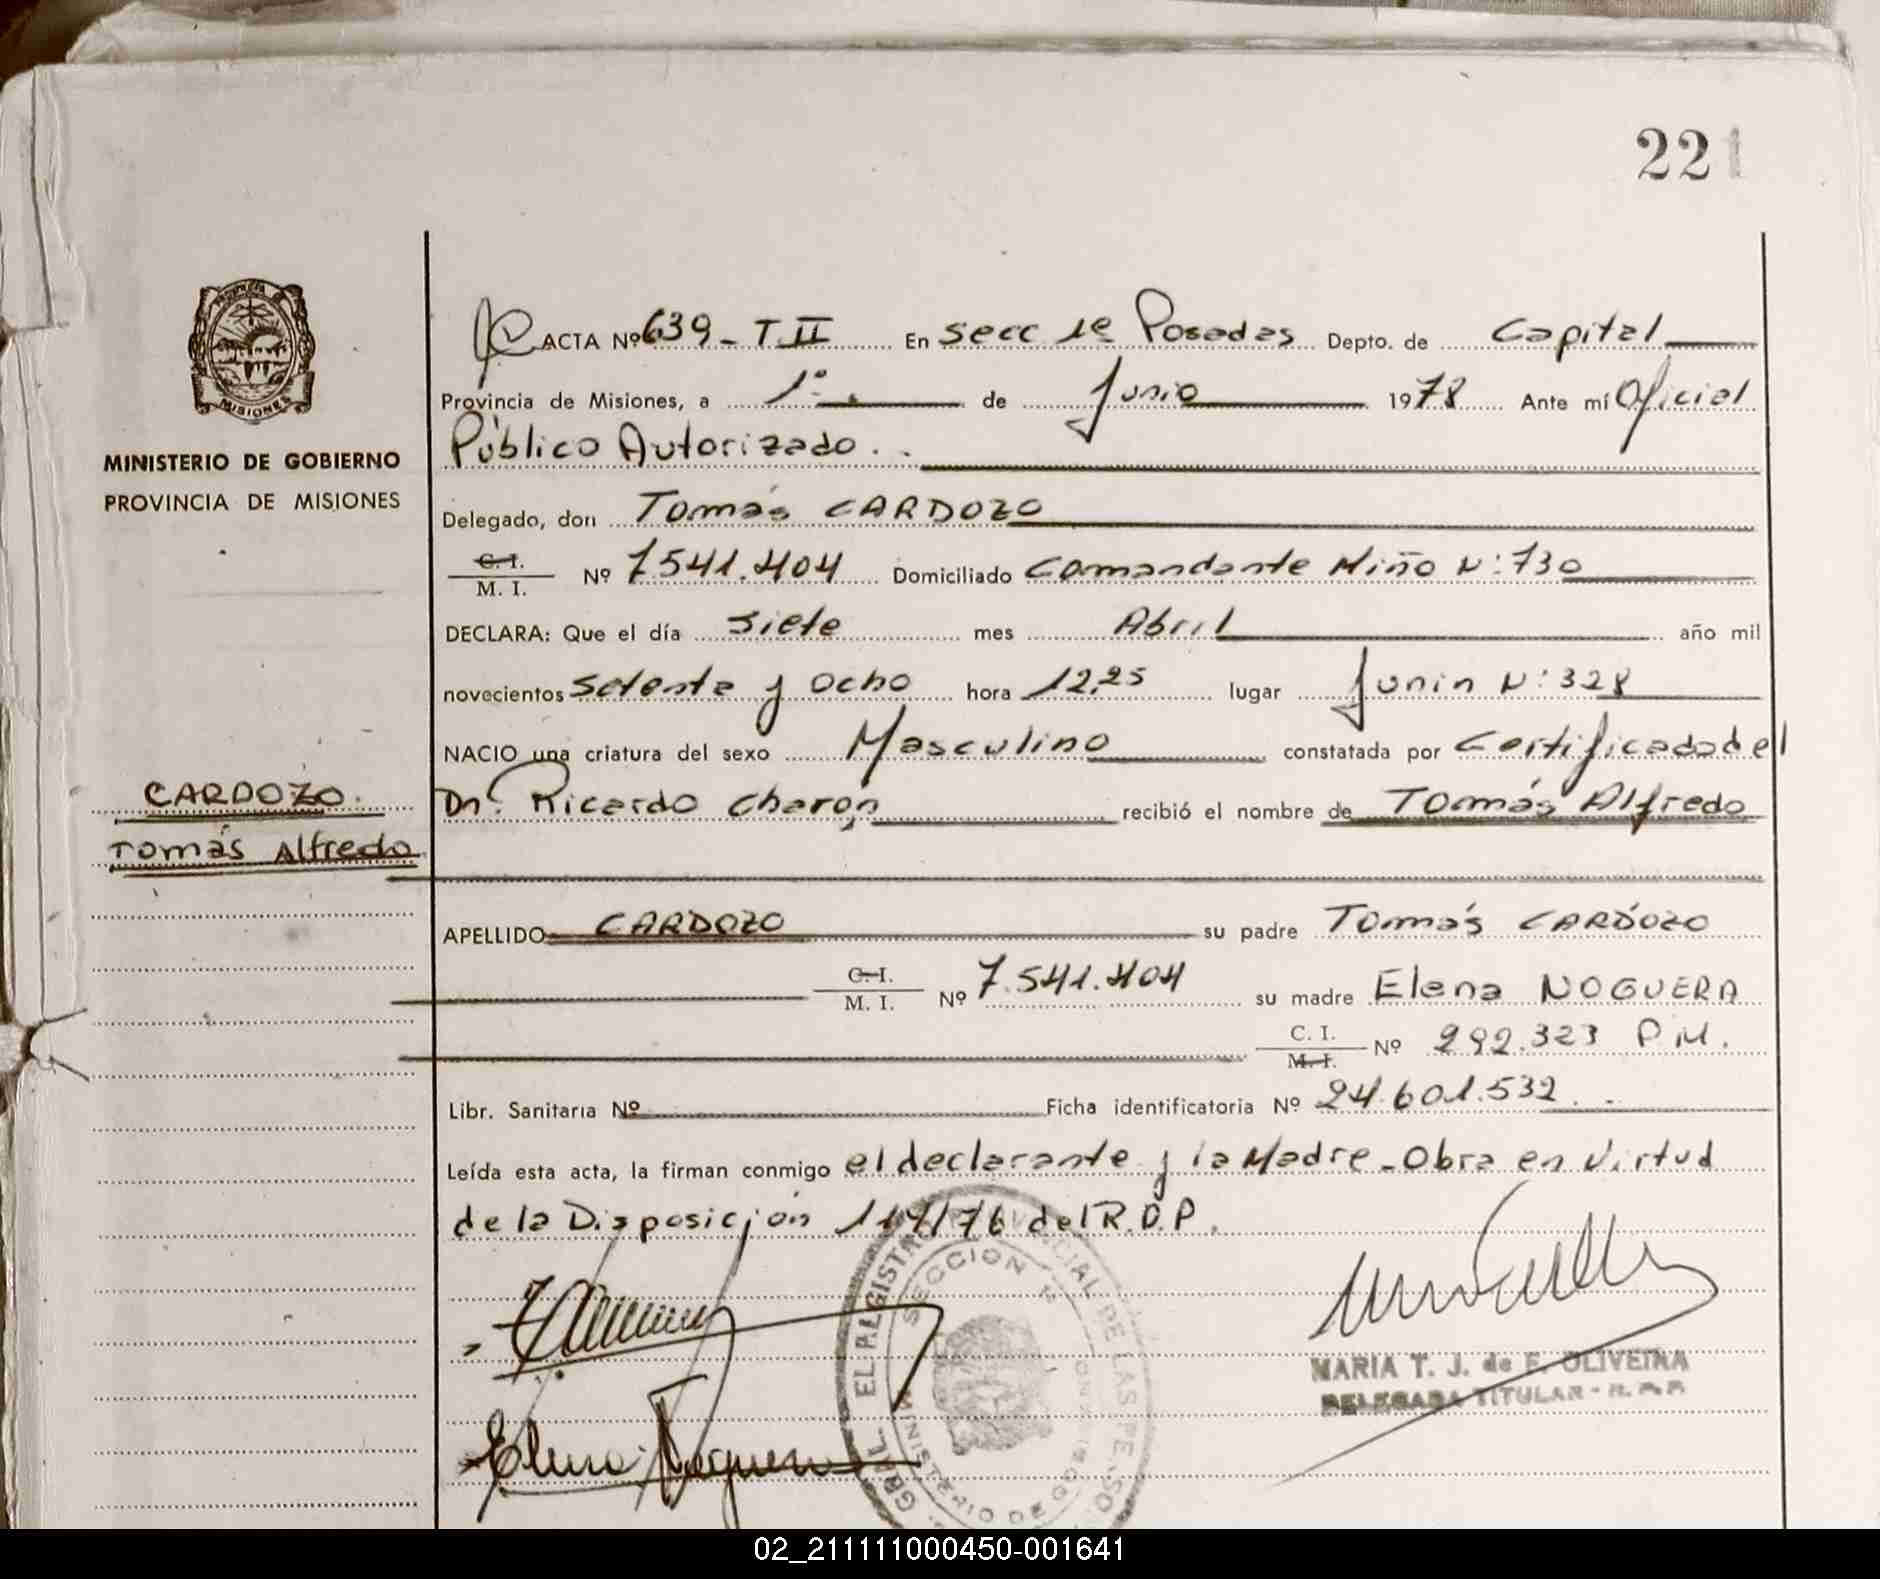 221
ACTA Nº 639 - T. II En Secc 1ª Posadas Depto. de Capital
Provincia de Misiones, a 1º de Junio 1978 Ante mí Oficial
Público Autorizado.
MINISTERIO DE GOBIERNO
PROVINCIA DE MISIONES
MISIONES
Delegado, don Tomás CARDOZO
C. I.
M. I. Nº 7.541.404 Domiciliado Comandante Miño Nº: 730
DECLARA: Que el día Siete mes Abril año mil
novecientos Setenta y Ocho hora 12,25 lugar Junín Nº: 328
NACIO una criatura del sexo Masculino constatada por Certificado del
CARDOZO.
Tomás Alfredo
Dr. Ricardo Charon recibió el nombre de Tomás Alfredo
APELLIDO CARDOZO su padre Tomás CARDOZO
C. I.
M. I. Nº 7.541.404 su madre Elena NOGUERA
C. I.
M. I. Nº 292.323 P.M.
Libr. Sanitaria Nº Ficha identificatoria Nº 24.601.532.
Leída esta acta, la firman conmigo el declarante y la Madre - Obra en Virtud
de la Disposición 114/76 del R.D.P.
SECCION 1ª
MARIA T. J. de F. OLIVEIRA
DELEGADA TITULAR - R. P. P.
Elena Noguera
02_211111000450-001641